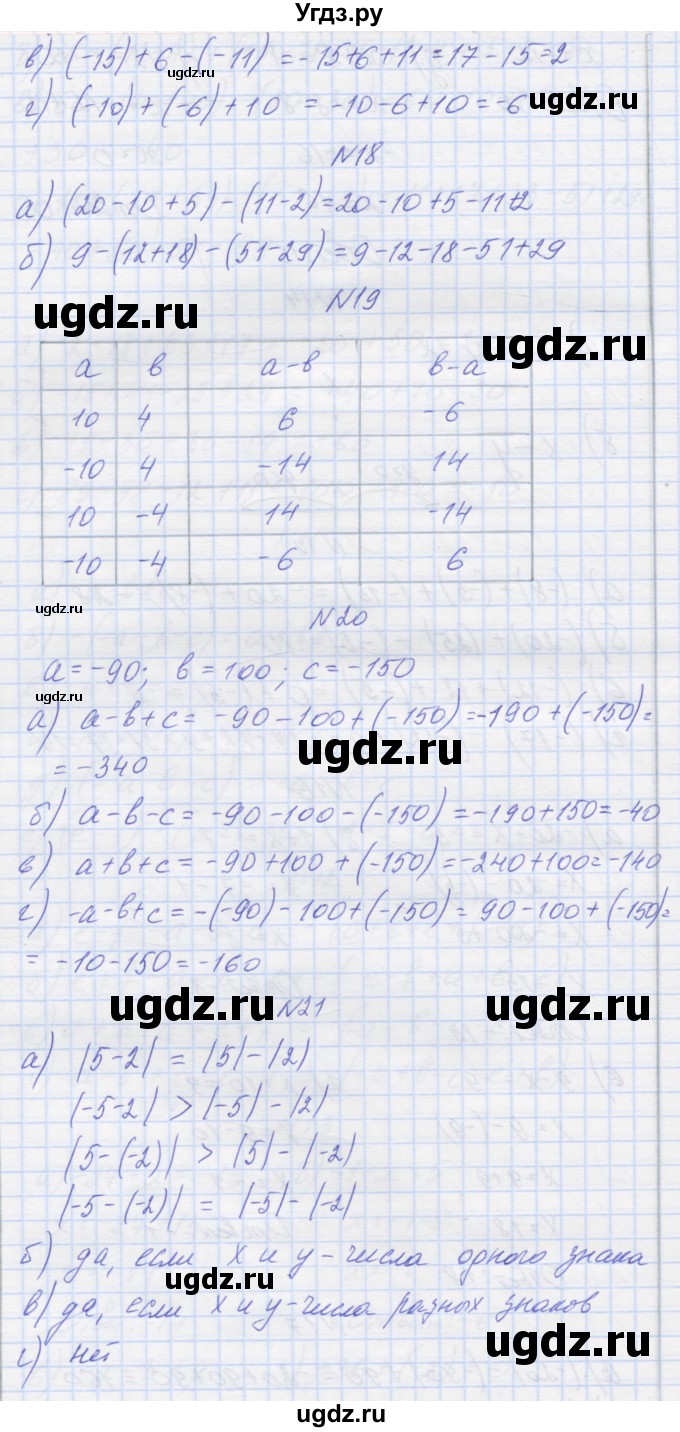 Угдз.ру
в) (-15)+6-(-11) =-15+6+11=17-15=2
ugdz.ru
г) (-10)+(-6)+10 = -10-6+10=-6
ugdz.ru
N18
а) (20-10+5)-(11-2)=20-10+5-11+2
б) 9-(12+18)-(51-29)=9-12-18-51+29
N19
ugdz.ru
ugdz.ru
а в а-в в-а
10 4 6 -6
-10 4 -14 14
10 -4 14 -14
-10 -4 -6 6
ugdz.ru
N20
а=-90; в=100; с=-150
ugdz.ru
а) а-в+с= -90-100+(-150)=-190+(-150)=
ugdz.ru
= -340
б) а-в-с= -90-100-(-150)=-190+150=-40
в) а+в+с=-90+100+(-150)=-240+100=-140
г) -а-в+с=-(-90)-100+(-150)= 90-100+(-150)=
= -10-150=-160
ugdz.ru
ugdz.ru
N21
а) |5-2| = |5|-|2|
|-5-2| > |-5|-|2|
|5-(-2)| > |5|-|-2|
|-5-(-2)| = |-5|-|-2|
б) да, если х и у - числа одного знака
ugdz.ru
в) да, если х и у - числа разных знаков
ugdz.ru
г) нет
ugdz.ru